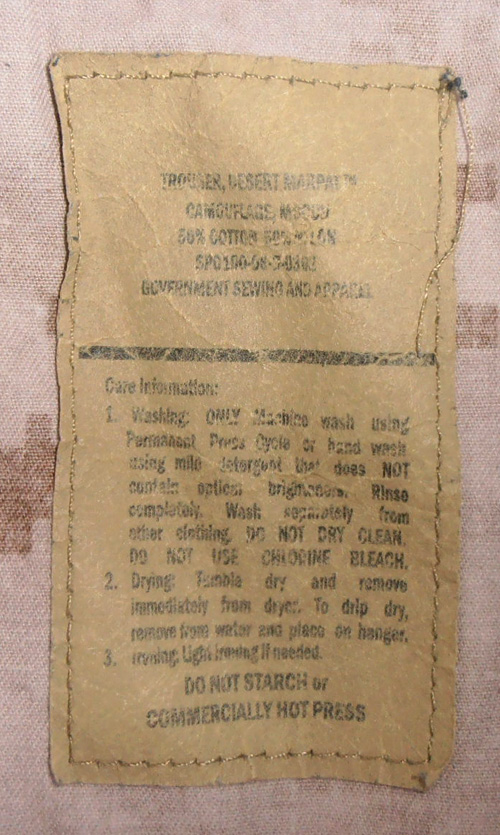 TROUSER, DESERT MARPAT™
CAMOUFLAGE, MCCUU
50% COTTON 50% NYLON
GOVERNMENT SEWING AND APPAREL
Care Information:
1. Washing: ONLY Machine wash using
Permanent Press Cycle or hand wash
using mild detergent that does NOT
contain optical brighteners. Rinse
completely. Wash separately from
other clothing. DO NOT DRY CLEAN.
DO NOT USE CHLORINE BLEACH.
2. Drying: Tumble dry and remove
immediately from dryer. To drip dry,
remove from water and place on hanger.
3. Ironing: Light ironing if needed.
DO NOT STARCH or
COMMERCIALLY HOT PRESS